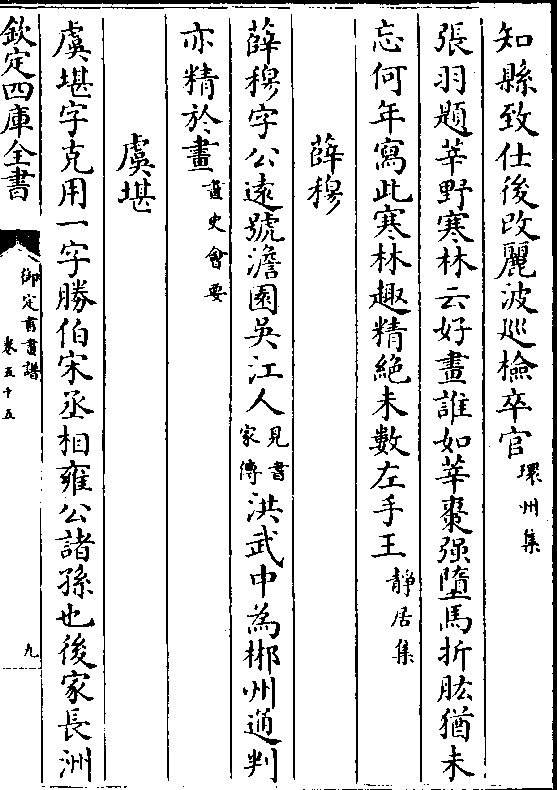 知縣致仕後改麗波巡檢卒官環州集
張羽題莘野寒林云好畫誰如華棗强墮馬折肱猶未
忘何年寫此寒林趣精絶未數左手王靜居集
薛穆
薛穆字公遠號澹園吳江人見書家傳洪武中為郴州通判
亦精於畫畫史會要
虞堪
虞堪字克用一字勝伯宋丞相雍公諸孫也後家長洲
欽定四庫全書
御定書畫譜
卷五十五
九